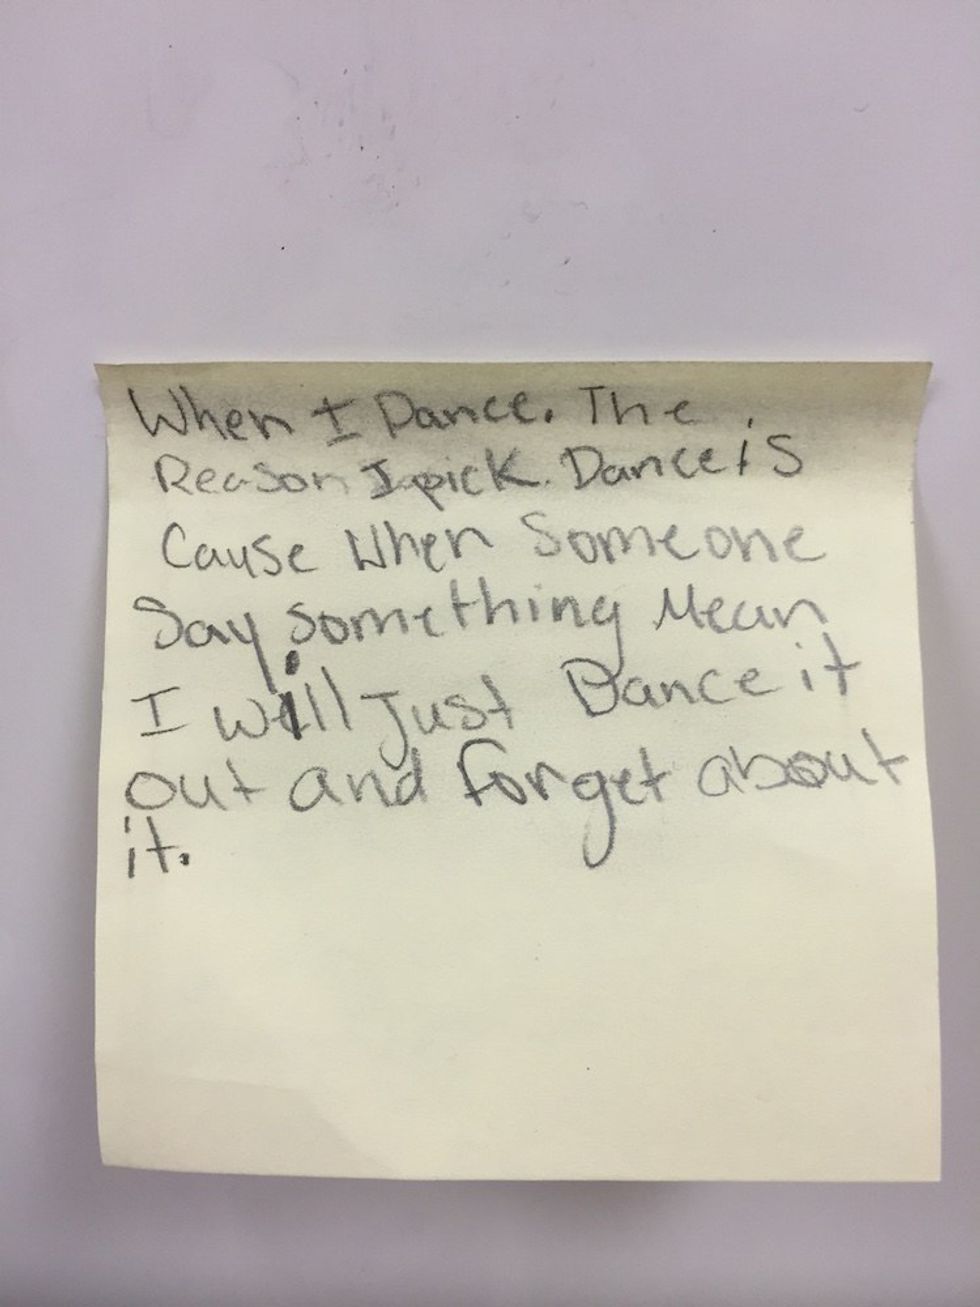 When I Dance. The
Reason I pick. Dance is
Cause When Someone
Say something Mean
I will Just Dance it
out and forget about
it.